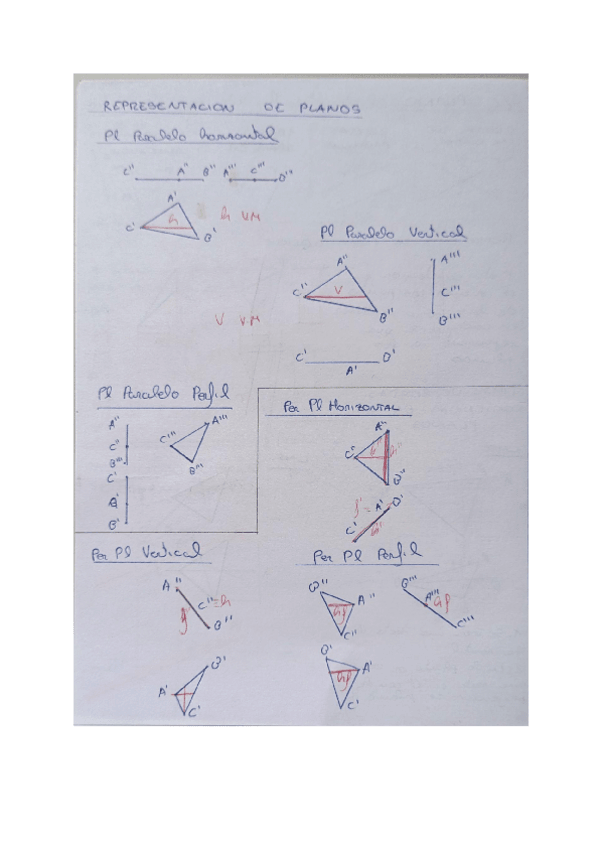 REPRESENTACION DE PLANOS
Pl Paralelo horizontal
C'' A'' B'' A''' C''' B'''
A'
C' h B' h VM
Pl Paralelo Vertical
A'' A'''
C'' V C'''
B'' B'''
V VM
C' A' B'
Pl Paralelo Perfil
A'' A'''
C'' C'''
B'' B'''
C'
A'
B'
Per Pl HORIZONTAL
A''
C'' h
B''
f' = A' B'
C'
Per Pl Vertical
A''
f C'' = h
B''
B'
A'
C'
Per Pl Perfil
B'' B'''
hf A'' A''' hf
C'' C'''
B'
hf A'
C'